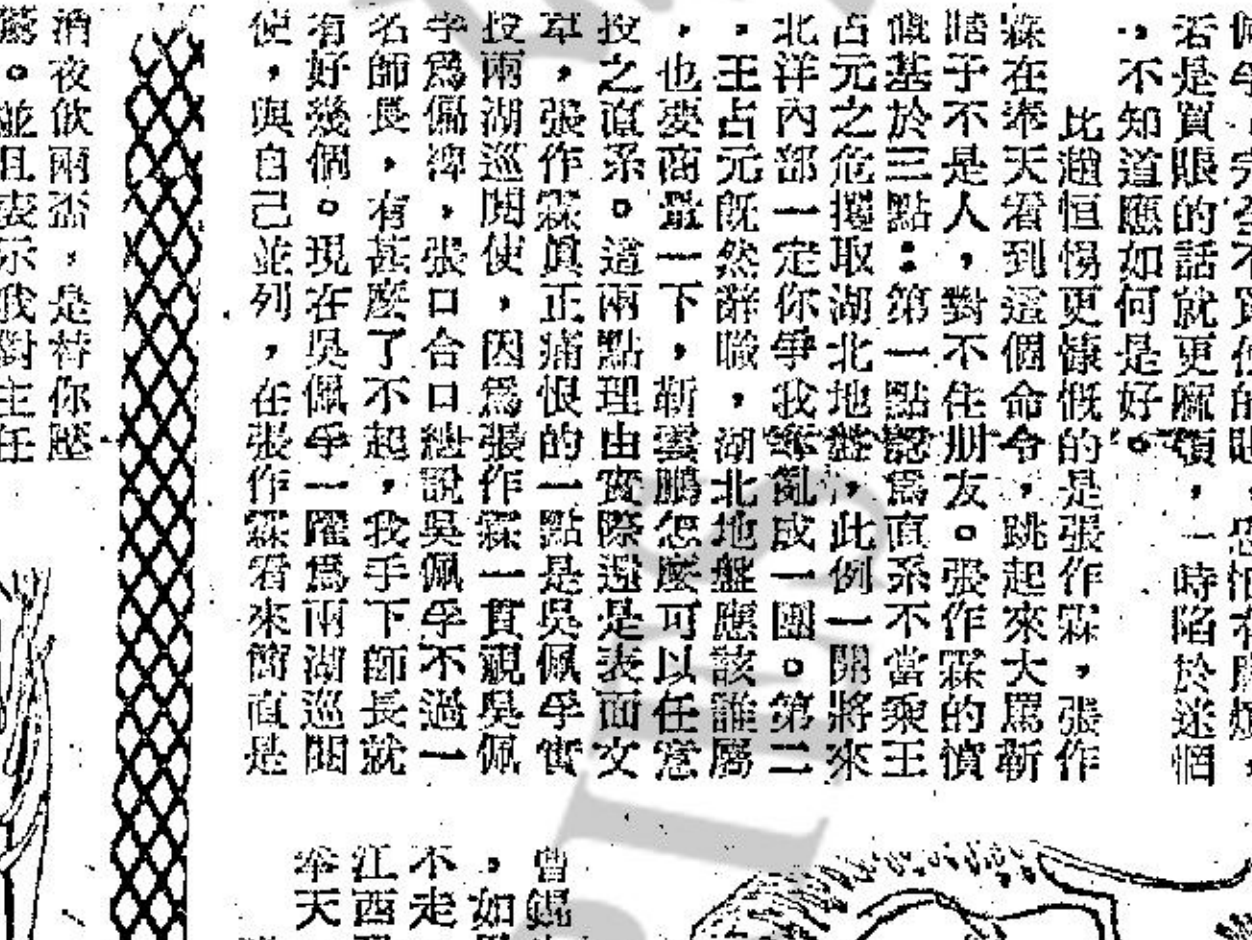 若是買眼的話就更麻煩，一時陷於迷惘
，不知道應如何是好。
比趙恒惕更慷慨的是張作霖，張作
霖在奉天看到這個命令，跳起來大罵靳
瞎子不是人，對不住朋友。張作霖的憤
慨基於三點：第一點認爲直系不當乘王
占元之危攫取湖北地盤，此例一開將來
北洋內部一定你爭我奪亂成一團。第二
，王占元既然辭職，湖北地盤應該誰屬
，也要商量一下，靳雲鵬怎麼可以任意
投之直系。這兩點理由實際還是表面文
章，張作霖眞正痛恨的一點是吳佩孚實
授兩湖巡閱使，因爲張作霖一貫視吳佩
孚爲偏裨，張口合口總說吳佩孚不過一
名師長，有甚麼了不起，我手下師長就
有好幾個。現在吳佩孚一躍爲兩湖巡閱
使，與自己並列，在張作霖看來簡直是
曾錕
，如
不走
江西
奉天
酒夜飲兩盃，是替你壓
驚。並且表示我對主任